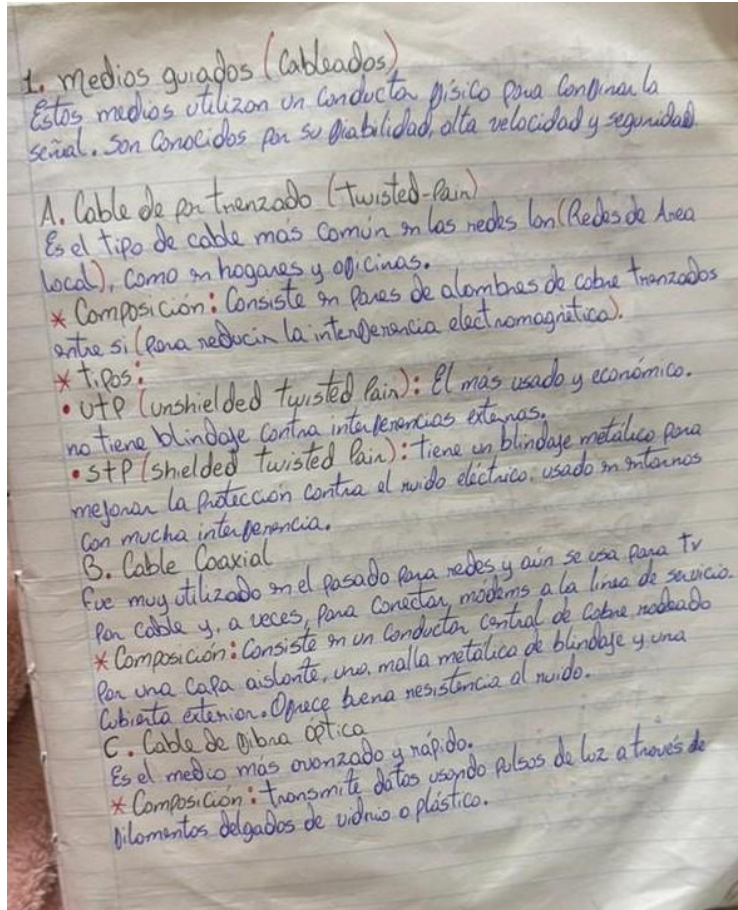 1. medios guiados (Cableados)
Estos medios utilizan un conductor físico para confinar la
señal. son conocidos por su fiabilidad, alta velocidad y seguridad.
A. Cable de par trenzado (twisted-Pair)
Es el tipo de cable más común en las redes lan (Redes de Area
local), como en hogares y oficinas.
* Composición: Consiste en Pares de alambres de cobre trenzados
entre si (para reducir la interferencia electromagnética).
* tipos:
• UtP (unshielded twisted Pair): El más usado y económico.
no tiene blindaje contra interferencias externas.
• StP (shielded twisted Pair): tiene un blindaje metálico para
mejorar la Protección contra el ruido eléctrico. usado en entornos
con mucha interferencia.
B. Cable Coaxial
fue muy utilizado en el pasado para redes y aún se usa para tv
Por cable y, a veces, para conectar módems a la línea de servicio.
* Composición: Consiste en un conductor central de cobre rodeado
Por una capa aislante, una malla metálica de blindaje y una
Cubierta exterior. Ofrece buena resistencia al ruido.
C. Cable de fibra óptica
Es el medio más avanzado y rápido.
* Composición: transmite datos usando pulsos de luz a través de
filamentos delgados de vidrio o plástico.